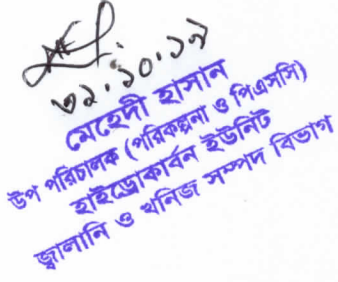 ৩১.১০.১৭
মেহেদী হাসান
উপ পরিচালক (পরিকল্পনা ও পিএসসি)
হাইড্রোকার্বন ইউনিট
জ্বালানি ও খনিজ সম্পদ বিভাগ